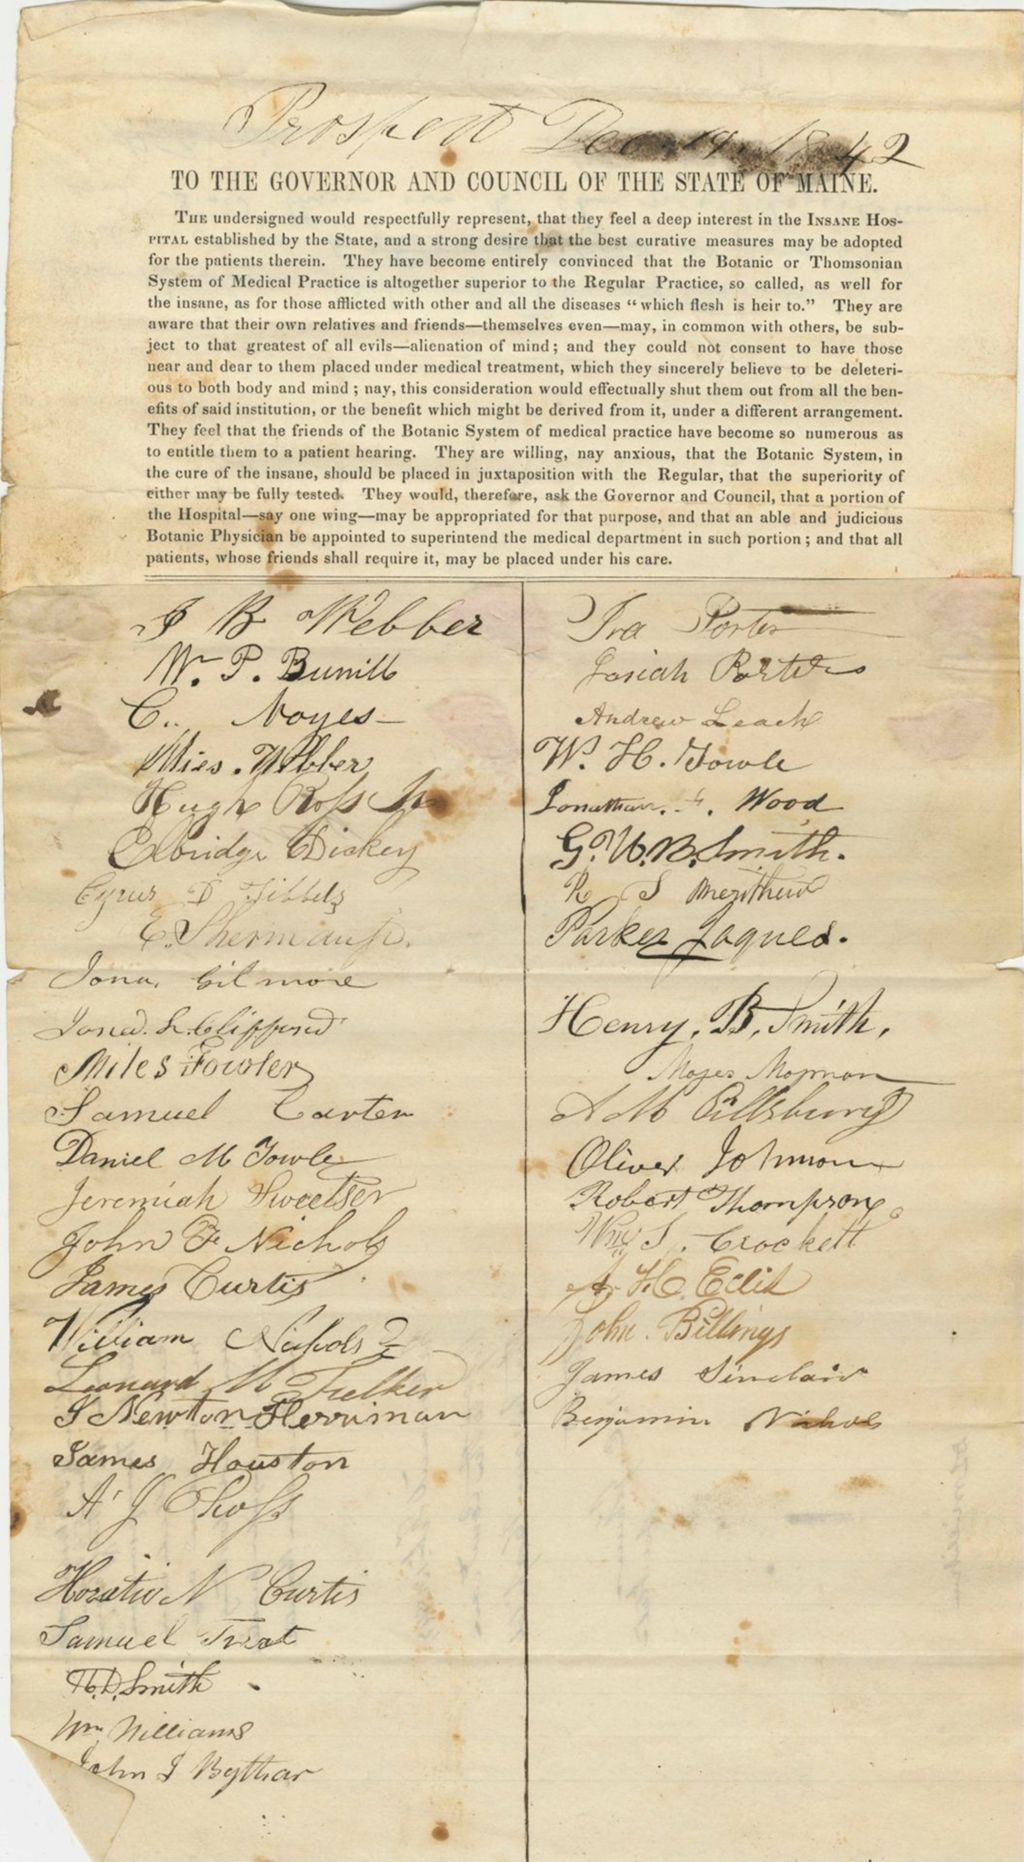 Prospect Dec 19. 1842
TO THE GOVERNOR AND COUNCIL OF THE STATE OF MAINE.
THE undersigned would respectfully represent, that they feel a deep interest in the INSANE HOS-
PITAL established by the State, and a strong desire that the best curative measures may be adopted
for the patients therein. They have become entirely convinced that the Botanic or Thomsonian
System of Medical Practice is altogether superior to the Regular Practice, so called, as well for
the insane, as for those afflicted with other and all the diseases "which flesh is heir to." They are
aware that their own relatives and friends—themselves even—may, in common with others, be sub-
ject to that greatest of all evils—alienation of mind; and they could not consent to have those
near and dear to them placed under medical treatment, which they sincerely believe to be deleteri-
ous to both body and mind; nay, this consideration would effectually shut them out from all the ben-
efits of said institution, or the benefit which might be derived from it, under a different arrangement.
They feel that the friends of the Botanic System of medical practice have become so numerous as
to entitle them to a patient hearing. They are willing, nay anxious, that the Botanic System, in
the cure of the insane, should be placed in juxtaposition with the Regular, that the superiority of
either may be fully tested. They would, therefore, ask the Governor and Council, that a portion of
the Hospital—say one wing—may be appropriated for that purpose, and that an able and judicious
Botanic Physician be appointed to superintend the medical department in such portion; and that all
patients, whose friends shall require it, may be placed under his care.
J B Webber
W. P. 
C. Noyes
Webber
Hugh Ross Jr
Elbridge Dickey
Cyrus D Tibbets
E. Sherman Jr.
Jona. Gilmore
Jona. L. Clifford
Miles Fowler
Samuel Carter
Daniel M Towle
Jeremiah Sweetser
John F Nichols
James Curtis
William Nichols 2
Leonard M Felker
J Newton Herriman
James Houston
A J
Horatio N Curtis
Samuel Treat
H. D. Smith
Wm Williams
John J Bythar
Ira Porter
Josiah Porter
Andrew Leach
W. H. Towle
Jonathan. Wood
G. W. B. Smith.
R S Merithew
Parker Jaques.
Henry. B. Smith.
Moses
A M Pillsbury
Oliver Johnson
Robert Thompson
Wm S. Crockett
A H Ellis
John. Billings
James Sinclair
Benjamin Nichols